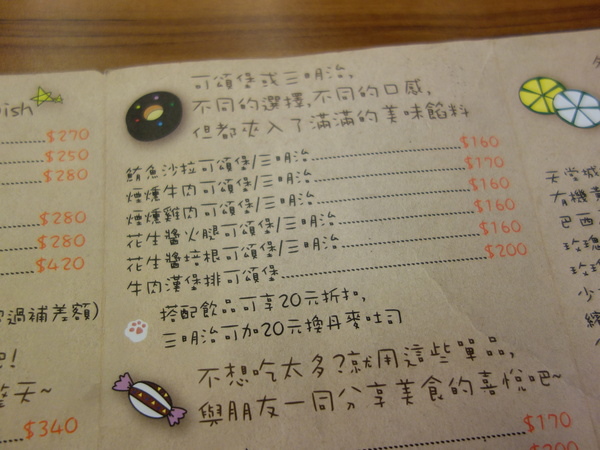 ish
$270
$250
$280
$280
$280
$420
過補差額)
吧!
天~
$340
可頌堡或三明治,
不同的選擇,不同的口感,
但都夾入了滿滿的美味餡料
鮪魚沙拉可頌堡/三明治 $160
煙燻牛肉可頌堡/三明治 $170
煙燻雞肉可頌堡/三明治 $160
花生醬火腿可頌堡/三明治 $160
花生醬培根可頌堡/三明治 $160
牛肉漢堡排可頌堡 $200
搭配飲品可享20元折扣,
三明治可加20元換丹麥吐司
不想吃太多?就用這些單品,
與朋友一同分享美食的喜悅吧~
$170
天堂
有機
巴西
玫瑰
玫瑰
少